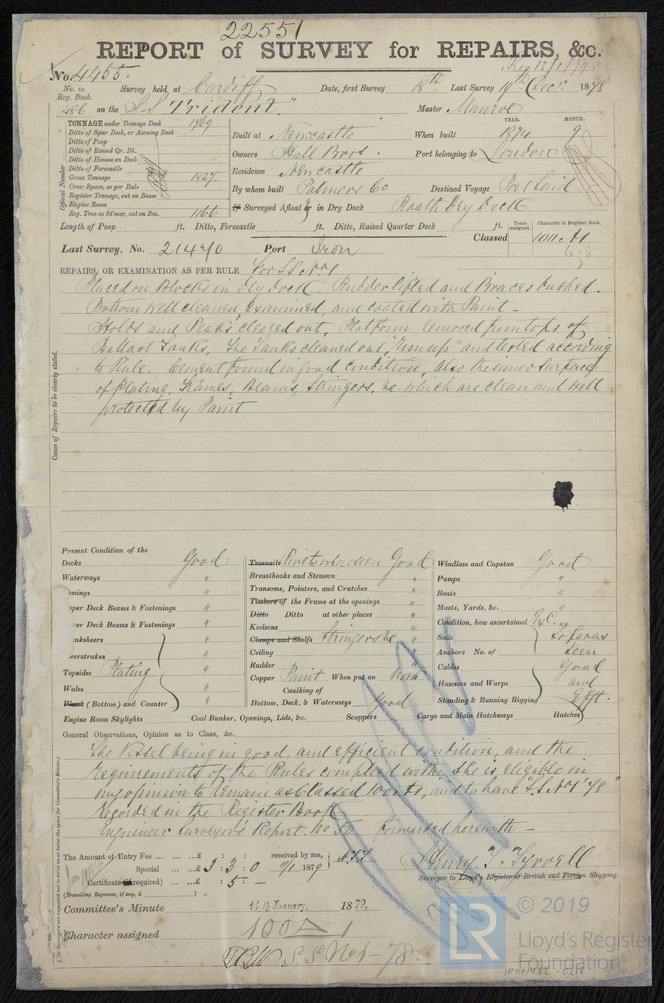 22551
REPORT of SURVEY for REPAIRS, &c.
No 4455.
Survey held, at Cardiff Date, first Survey 18th Last Survey 19th Decr 1878
No. in Reg. Book.
486 on the SS "Trident." Master Munroe
TONNAGE under Tonnage Deck 1769
Ditto of Spar Deck, or Awning Deck
Ditto of Poop
Ditto of Raised Qr. Dk.
Ditto of Houses on Deck
Ditto of Forecastle
Gross Tonnage 1827
Crew Space, as per Rule
Register Tonnage, cut on Beam
Engine Room
Reg. Tons as St'mar, cut on Bm. 1166
Official Number
YEAR. MONTH.
Built at Newcastle When built 1874 9
Owners Hall Bros. Port belonging to London
Residence Newcastle
By whom built Palmers Co Destined Voyage Port Said
If Surveyed Afloat or in Dry Dock Roath Dry Dock
Length of Poop ft. Ditto, Forecastle ft. Ditto, Raised Quarter Deck ft.
Years assigned. Character in Register Book.
Classed 100 A1
Last Survey, No. 21440 Port Iron
REPAIRS, OR EXAMINATION AS PER RULE For SS No 1
Placed on Blocks in Dry Dock Rudder lifted and Braces bushed.
Bottom well cleaned, Examined, and coated with Paint -
Holds and Peaks cleared out, Platform removed from tops of
Ballast Tanks, The Tanks cleaned out, "run up" and tested according
to Rule. Cement found in good condition, also the inner surface
of Plating, Frames, Beams, Stringers, &c which are clean and well
protected by Paint
Cause of Repairs to be clearly stated.
Present Condition of the
Decks Good
Waterways "
Comings "
Upper Deck Beams & Fastenings "
Lower Deck Beams & Fastenings "
Planksheers "
Sheerstrakes "
Topsides Plating "
Wales "
Plank (Bottom) and Counter "
Engine Room Skylights Coal Bunker, Openings, Lids, &c. Scuppers Cargo and Main Hatchways Hatches
Treenails Rivets where seen Good
Breasthooks and Stemson "
Transoms, Pointers, and Crutches "
Timbers of the Frame at the openings "
Ditto Ditto at other places "
Keelsons "
Clamps and Shelfs Stringers &c "
Ceiling "
Rudder "
Copper Paint When put on Now
Caulking of
Bottom, Deck, & Waterways Good
Windlass and Capstan Good
Pumps "
Boats "
Masts, Yards, &c. "
Condition, how ascertained
Sails so far as
Anchors No. of seen
Cables Good
Hawsers and Warps and
Standing & Running Rigging Efft.
General Observations, Opinion as to Class, &c.
The Vessel being in good, and efficient condition, and the
requirements of the Rules complied with, She is eligible in
my opinion to remain as Classed 100 A1, and to have "S.S. No 1 '78"
recorded in the Register Book
Engineer Surveyors Report No 50 forwarded herewith -
The Amount of Entry Fee ... £ : : received by me,
Special ... £ 3 : 3 : 0 1879
Certificate (if required) ... : 5 : -
(Travelling Expenses, if any, £ )
Henry T. Tyrrell
Surveyor to Lloyd's Register of British and Foreign Shipping.
Committee's Minute 14th January, 1879.
Character assigned 100 A 1
S.S. No 1 - 78.
LR
© 2019
Lloyd's Register
Foundation